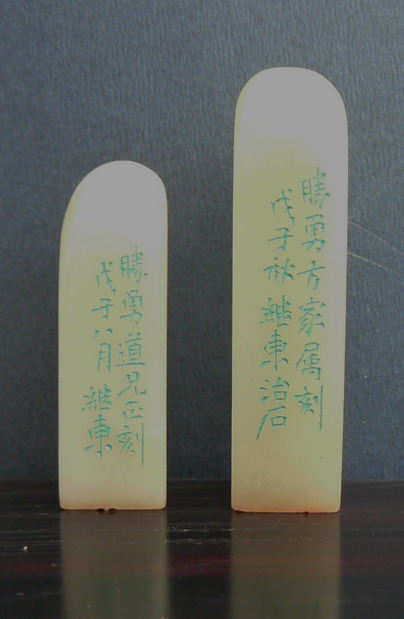 勝勇道兄正刻
戊子八月 継東
勝勇方家属刻
戊子秋継東治石